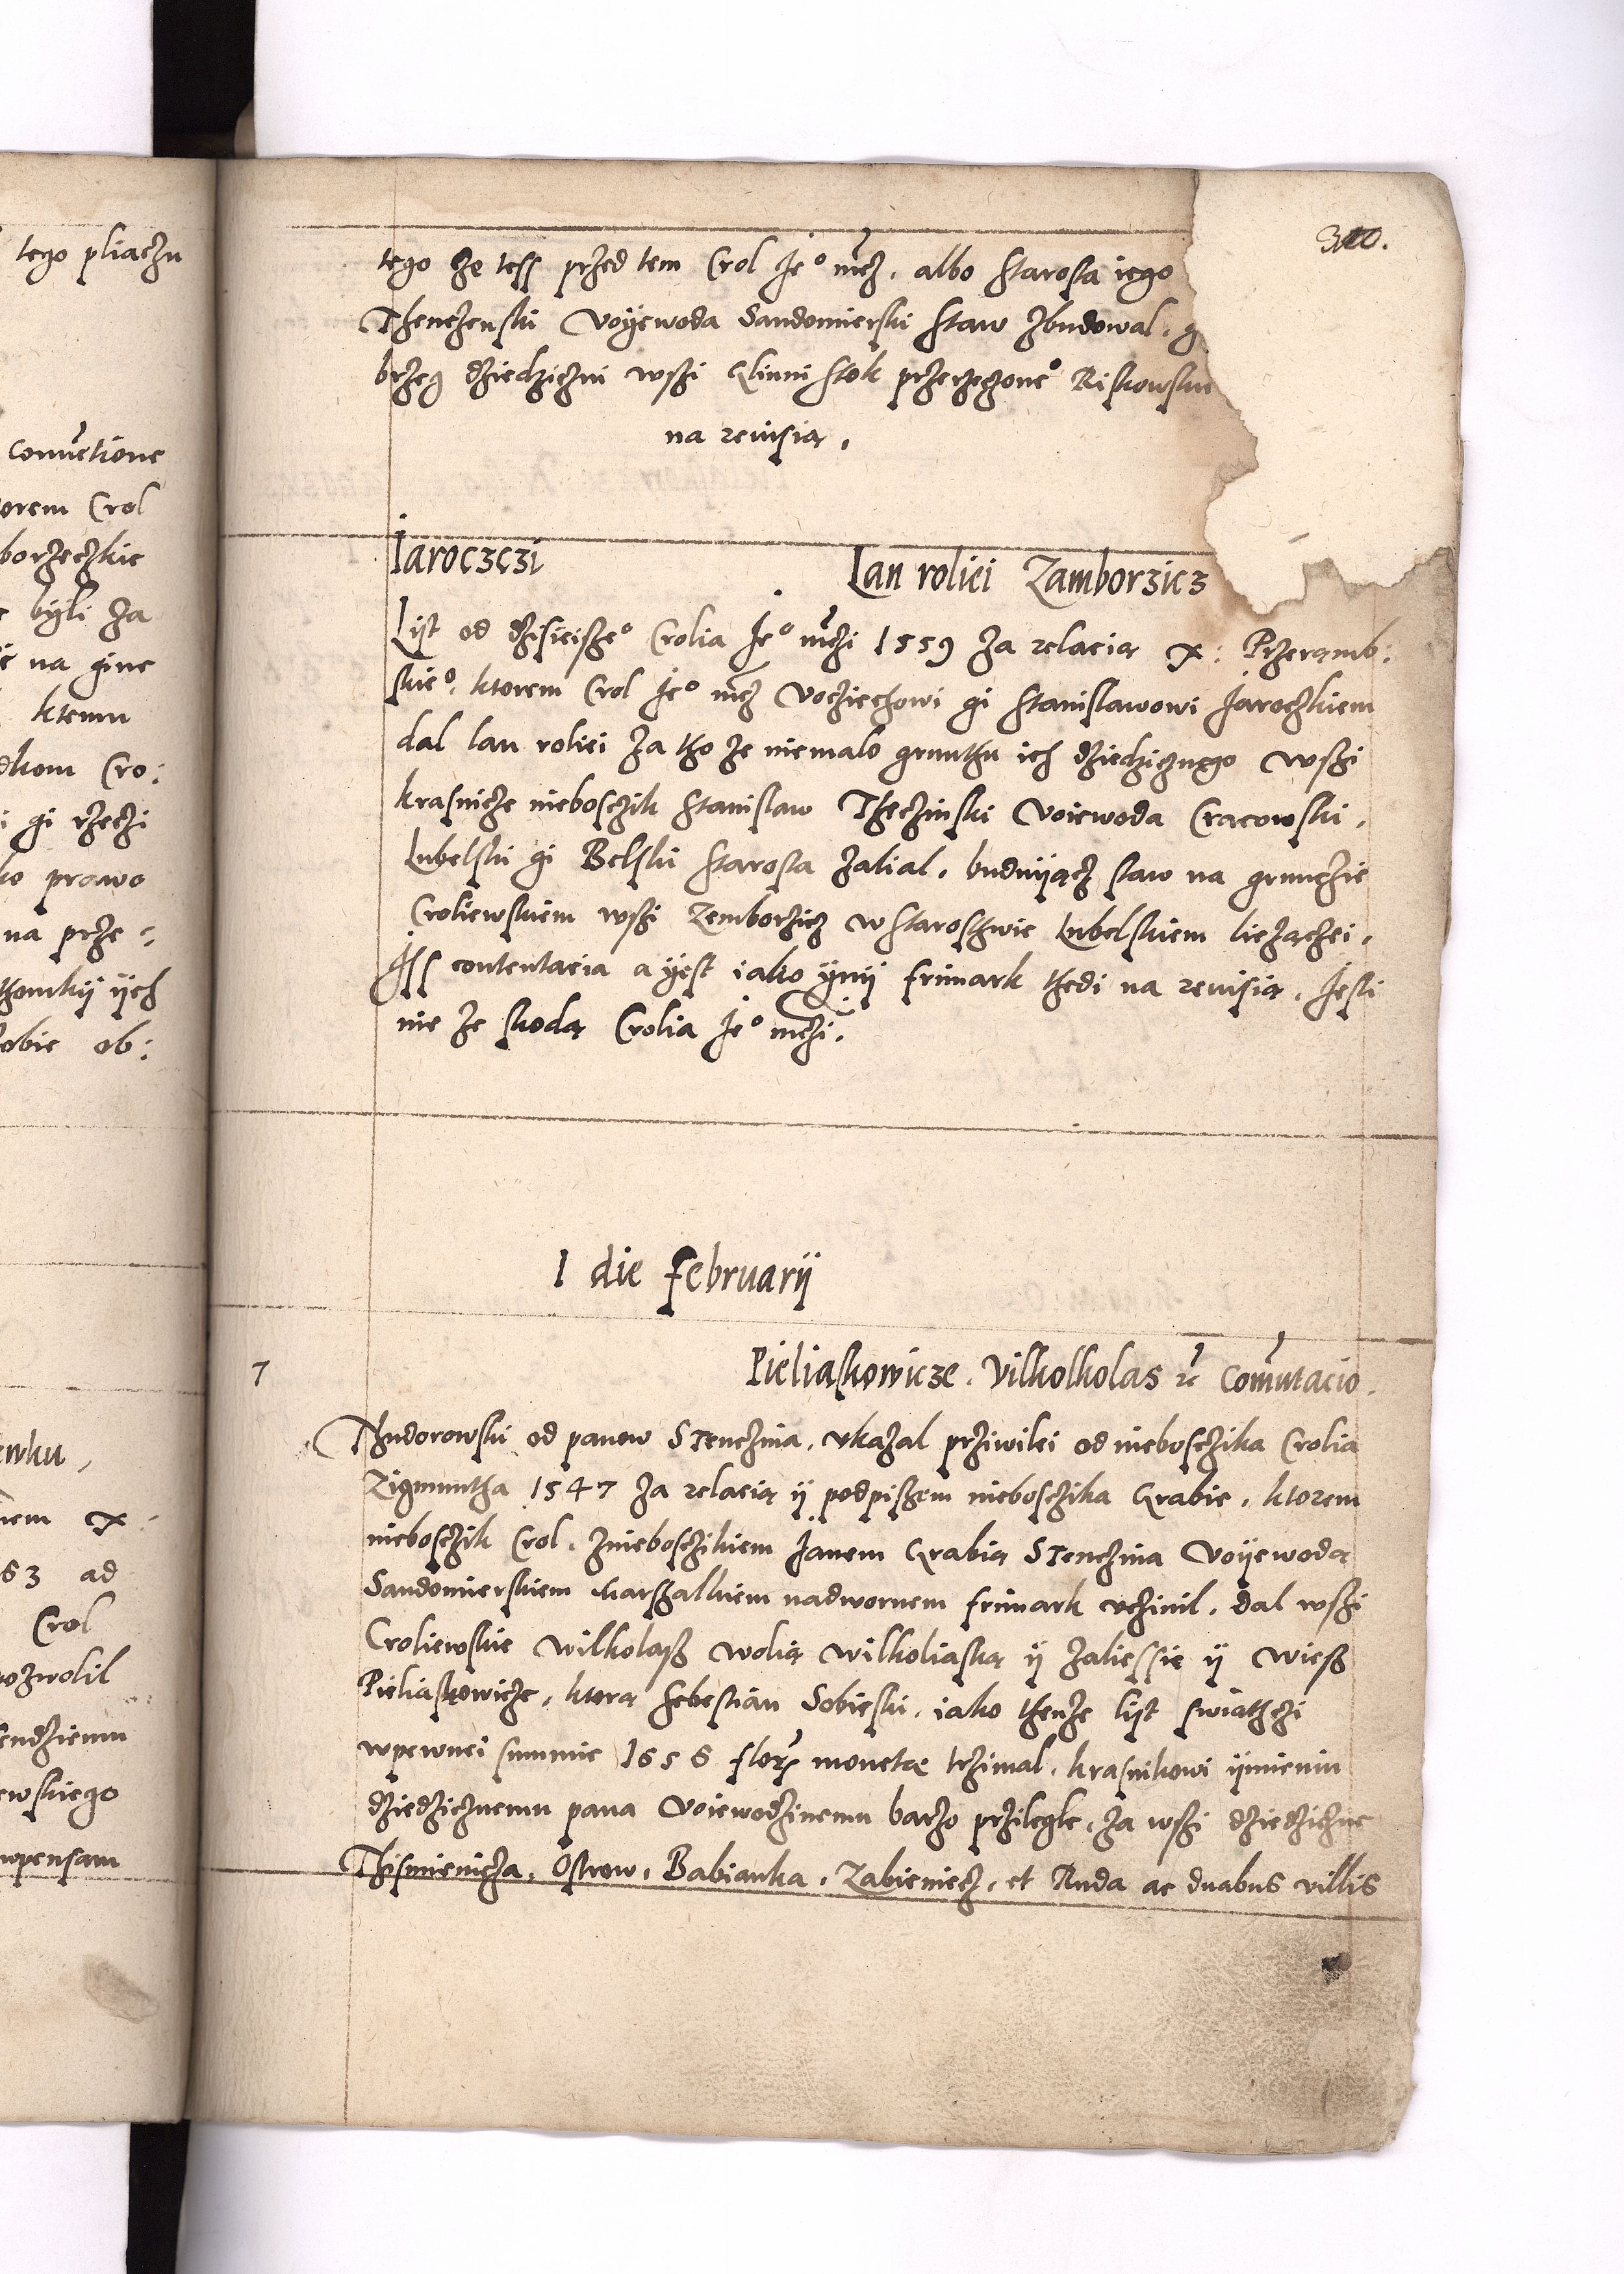 tego pliaczu
conuetione
Crol
byli za
na gine
ktemu
Cro:
gi rzeczi
prawo
na prze-
ÿch
ob:
ad
Crol
310.
tego ze tess przed tem Crol Je° mcz. albo starosta iego
Thenczenski voÿewoda Sandomierski staw zbudowal. g
brzeg dziedziczni wszi Glinni stok przerzeczone° Riskowskie
na reuisią.
Jaroczczi
Lan roliei Zamborzicz
List od dzisieisze° Crolia Je° mczi 1559 za relacią x: Przeramb:
skie°. ktorem Crol Je° mcz Vocziechowi gi Stanislawowi Jaroczkiem
dal lan roliei za tho ze niemalo gruntku ich dziedzicznego wszi
krasnicze nieboszczik Stanislaw Theczinski voiewoda Cracowski.
Lubelski gi Belski starosta zalial. buduÿącz staw na grunczie
Croliewskiem wszi Zemborzicz w starosthwie Lubelskiem liezączei.
Jss contentacia a ÿest iako ÿnÿ frimark thedi na reuisią. Jesli
nie ze skodą Crolia Je° mczi.
1 die februarÿ
7
Pieliaskowicze. Vilkolkolas rc Comutacio.
Thudorowski od panow STenczina. vkazal prziwilei od nieboszczika Crolia
Zigmuntha 1547 za relacią ÿ podpiszem nieboszczika Grabie. ktorem
nieboszczik Crol. znieboszczikiem Janem Grabią STenczina voÿewodą
Sandomierskiem Marszalkiem nadwornem frimark vczinil. dal wszi
Croliewskie wilkolasz wolią wilkoliaską ÿ zaliessie ÿ wiesz
Pieliaskowicze. ktorą sebestian Sobieski. iako thenze list swiathczi
wpewnei summie 1656 flor. monetae trzimal. krasnikowi ÿmieniu
dziedzicznemu pana voiewodzinemu barzo przilegle. za wszi dziedziczne
Thismienicza. Ostrow. Babianka. Zabieniecz. et Ruda ac duabus villis